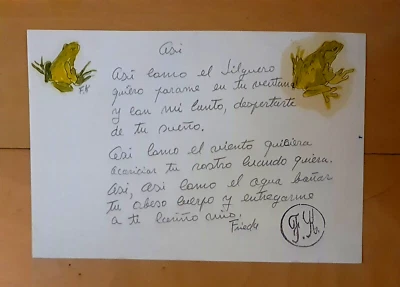 Asi
Asi como el Jilguero
quiero pararme en tu ventana
y con mi canto, despertarte
de tu sueño.
Asi como el viento quisiera
acariciar tu rostro cuando quiera.
Asi, asi como el agua bañar
tu cuerpo y entregarme
a ti cariño mio.
Frieda
F.K.
F.K.